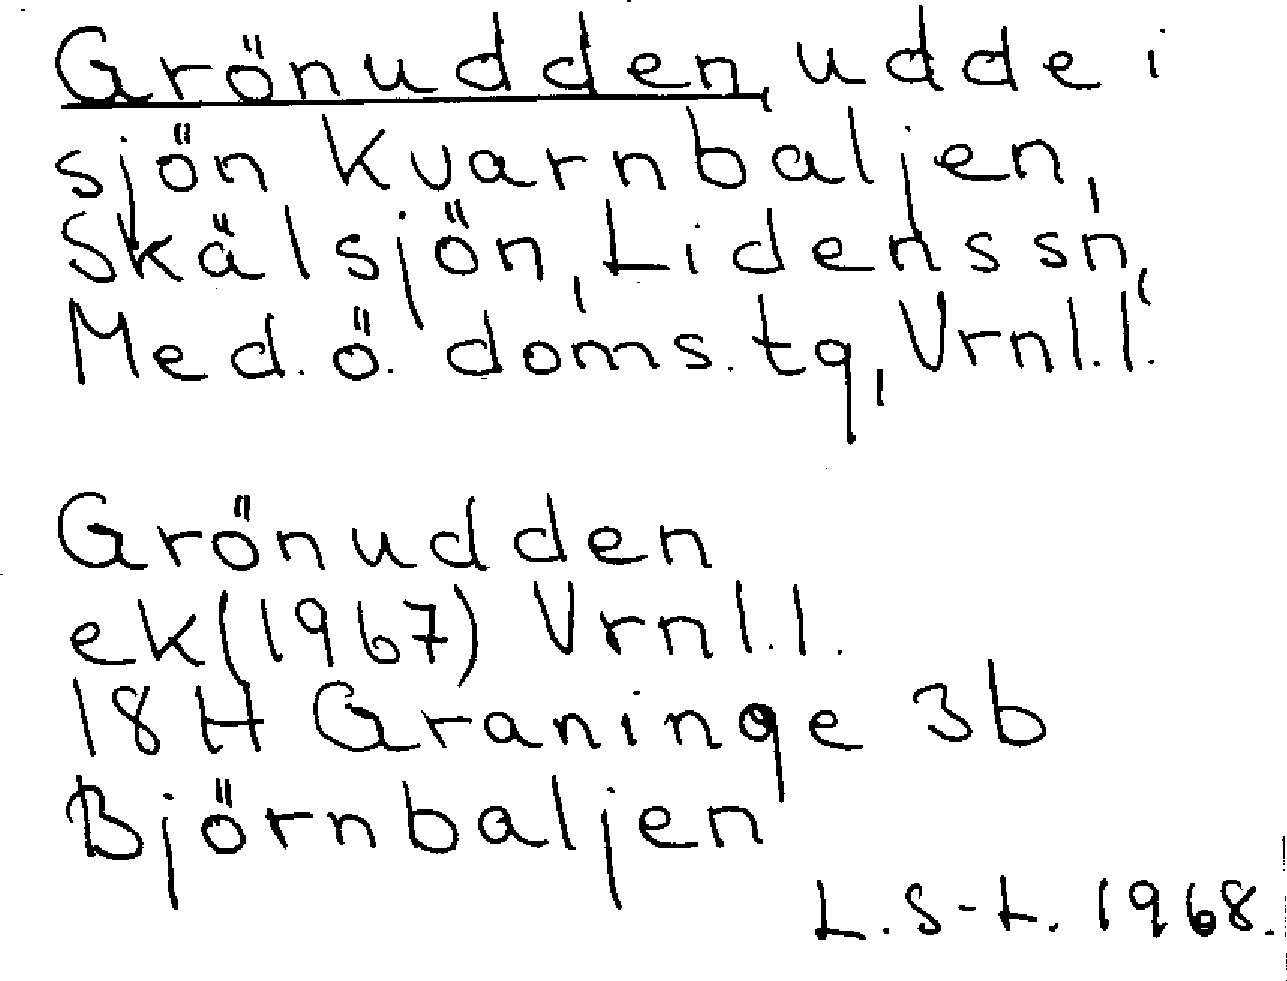 Grönudden, udde i
sjön Kvarnbaljen,
Skälsjön, Lidens sn,
Med. ö. doms. tg, Vrnl. l.
Grönudden
ek (1967) Vrnl. l.
18H Graninge 3b
Björnbaljen
L. S-L. 1968.